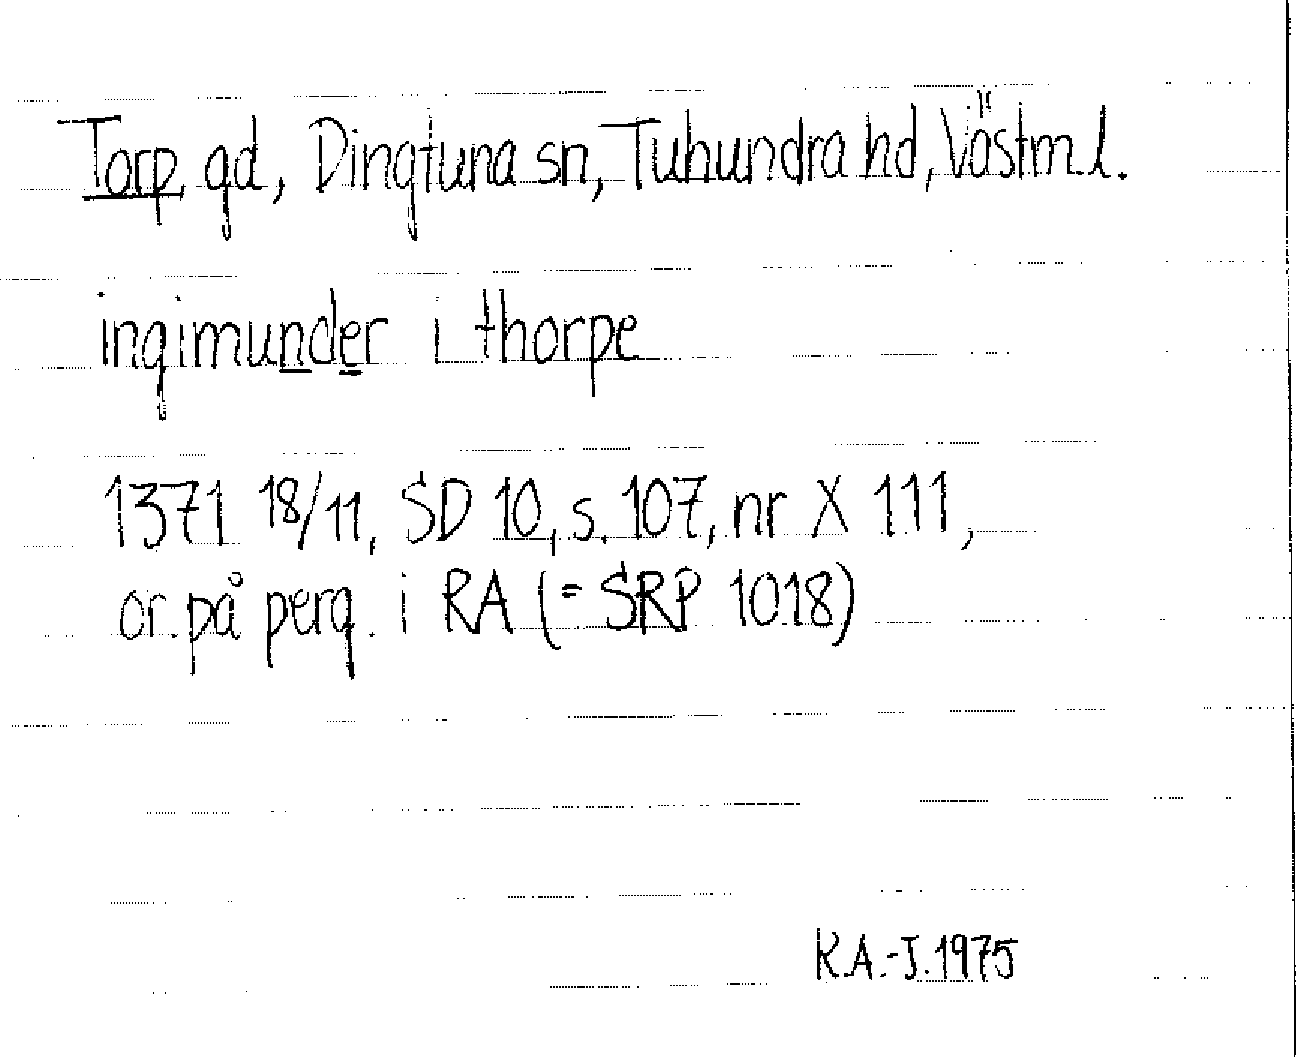 Torp gd, Dingtuna sn, Tuhundra hd, Västm l.
ingimunder i thorpe
1371 18/11, SD 10, s. 107, nr X 111,
or. på perg. i RA (= SRP 1018)
K.A.-J. 1975